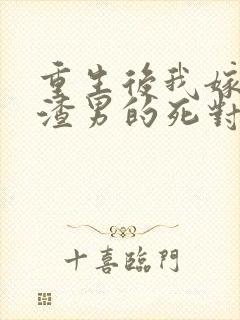 重生後我嫁
渣男的死對
十喜臨門